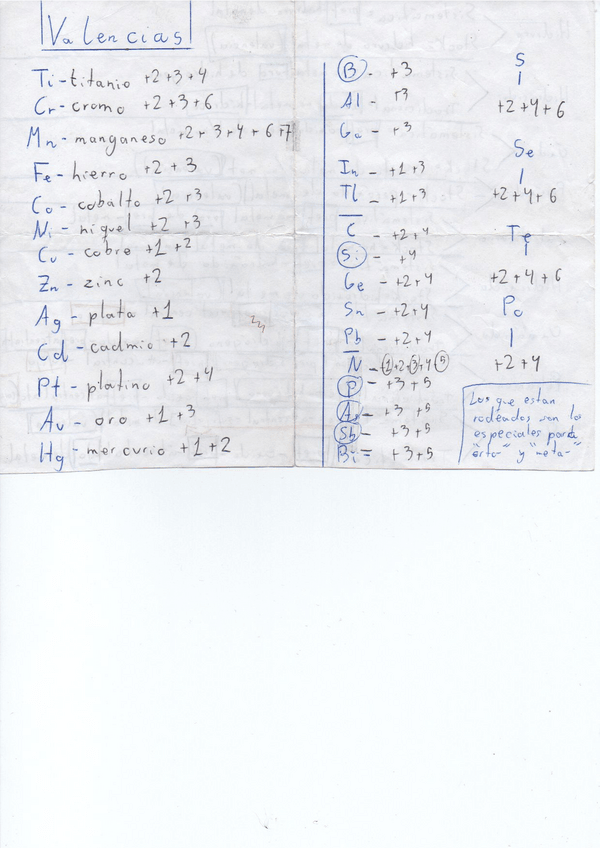 Valencias
Ti-titanio +2+3+4
Cr-cromo +2+3+6
Mn-manganeso +2+3+4+6+7
Fe-hierro +2+3
Co-cobalto +2+3
Ni-niquel +2+3
Cu-cobre +1+2
Zn-zinc +2
Ag-plata +1
Cd-cadmio +2
Pt-platino +2+4
Au-oro +1+3
Hg-mercurio +1+2
B- +3
Al- +3
Ga- +3
In-+1+3
Tl-+1+3
C-+2+4
Si-+4
Ge-+2+4
Sn-+2+4
Pb-+2+4
N-+1+2+3+4+5
P-+3+5
As-+3+5
Sb-+3+5
Bi-+3+5
S
+2+4+6
Se
+2+4+6
Te
+2+4+6
Po
+2+4
Los que estan
rodeados son lo
especiales para
"orto-" y "meta-"